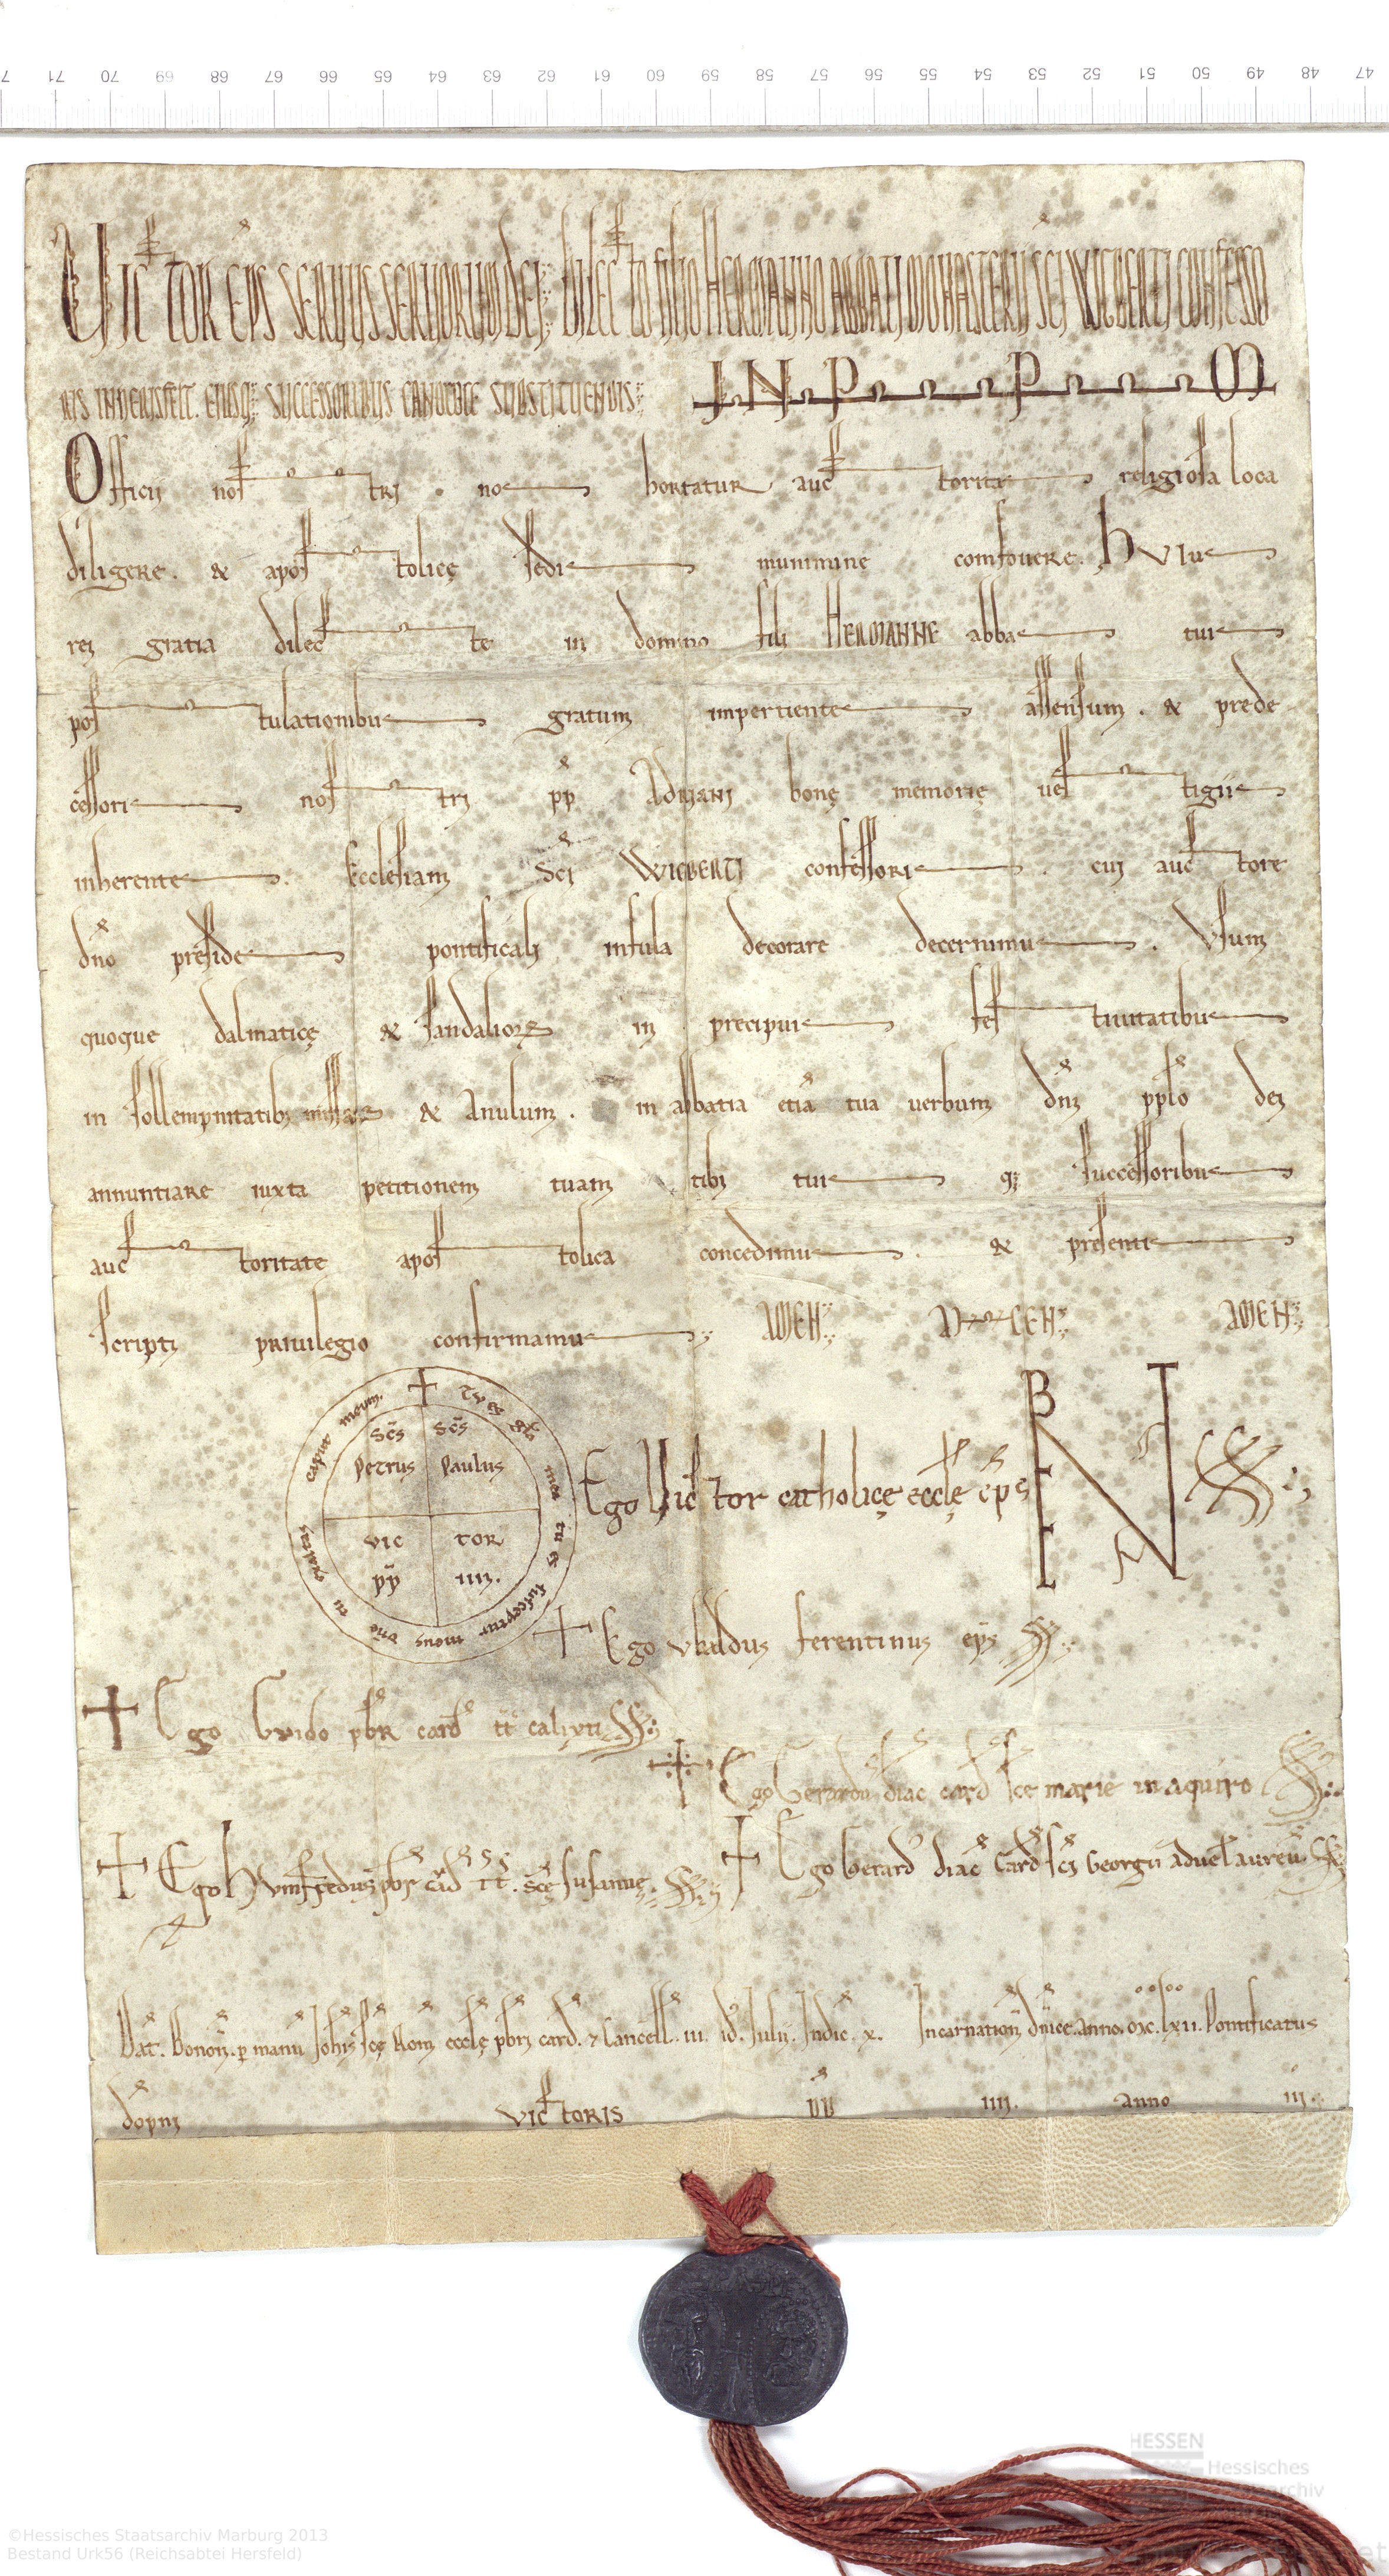 7 71 70 69 68 67 66 65 64 63 62 61 60 59 58 57 56 55 54 53 52 51 50 49 48 47
VICTOR EP̅S SERVUS SERVORUM DEI. DILECTO FILIO HERMANNO ABBATI MONASTERII SC̅I WICBERTI CONFESSO
RIS IN HERISFELT. EIUSQ; SUCCESSORIBUS CANONICE SUBSTITUENDIS; IN PPM
Officii nostri nos hortatur auctoritas religiosa loca
diligere. & apostolicę sedis munimine comfovere. HVIus
rei gratia dilecte in domino fili HERMANNE abbas tuis
postulationibus gratum impertientes assensum. & prede
cessoris nostri pp̅ ADRIANI bonę memorię vestigiis
inherentes. Ecclesiam Sc̅i WICBERTI confessoris. cui auctore
dn̅o presides pontificali infula decorare decernimus. Vsum
quoque dalmaticę & sandalioꝝ in precipuis festivitatibus
in sollempnitatibꝫ missaꝝ & Anulum. in abbatia etia̅ tua verbum dn̅i pp̅lo dei
annuntiare iuxta petitionem tuam tibi tuis qꝫ successoribus
auctoritate apostolica concedimus. & presentis
scripti privilegio confirmamus; AMEN; AMEN; AMEN;
Sc̅s Petrus Sc̅s Paulus
VIC TOR
pp̅ IIII.
tu es susceptor meus dn̅e tu gloria caput meum.
Ego Victor catholicę eccl̅ę ep̅s
BENE VALETE
Ego Vbaldus ferentinus ep̅s SS;
Ego Gvido pb̅r card̅ tt̅ calixti SS;
Ego Gerardus diac̅ card̅ sc̅e marie in aquiro SS;
Ego Hvmfredus pb̅r card̅ tt̅. sc̅ę susannę. SS;
Ego Gerard' diac̅ Card̅ sc̅i Georgii ad vel̅ aureu̅. SS
Dat̅. Bonon̅. ꝑ manu̅ Joh̅is sc̅ę Rom̅ eccl̅ę pb̅ri card̅. ⁊ Cancell̅. III. id̅. Julii. Indic̅. x. Incarnation̅ dn̅ice. anno. oxc. lxii. Pontificatus
do̅pni VICTORIS PP̅ IIII. anno III.
©Hessisches Staatsarchiv Marburg 2013
Bestand Urk56 (Reichsabtei Hersfeld)
HESSEN
Hessisches